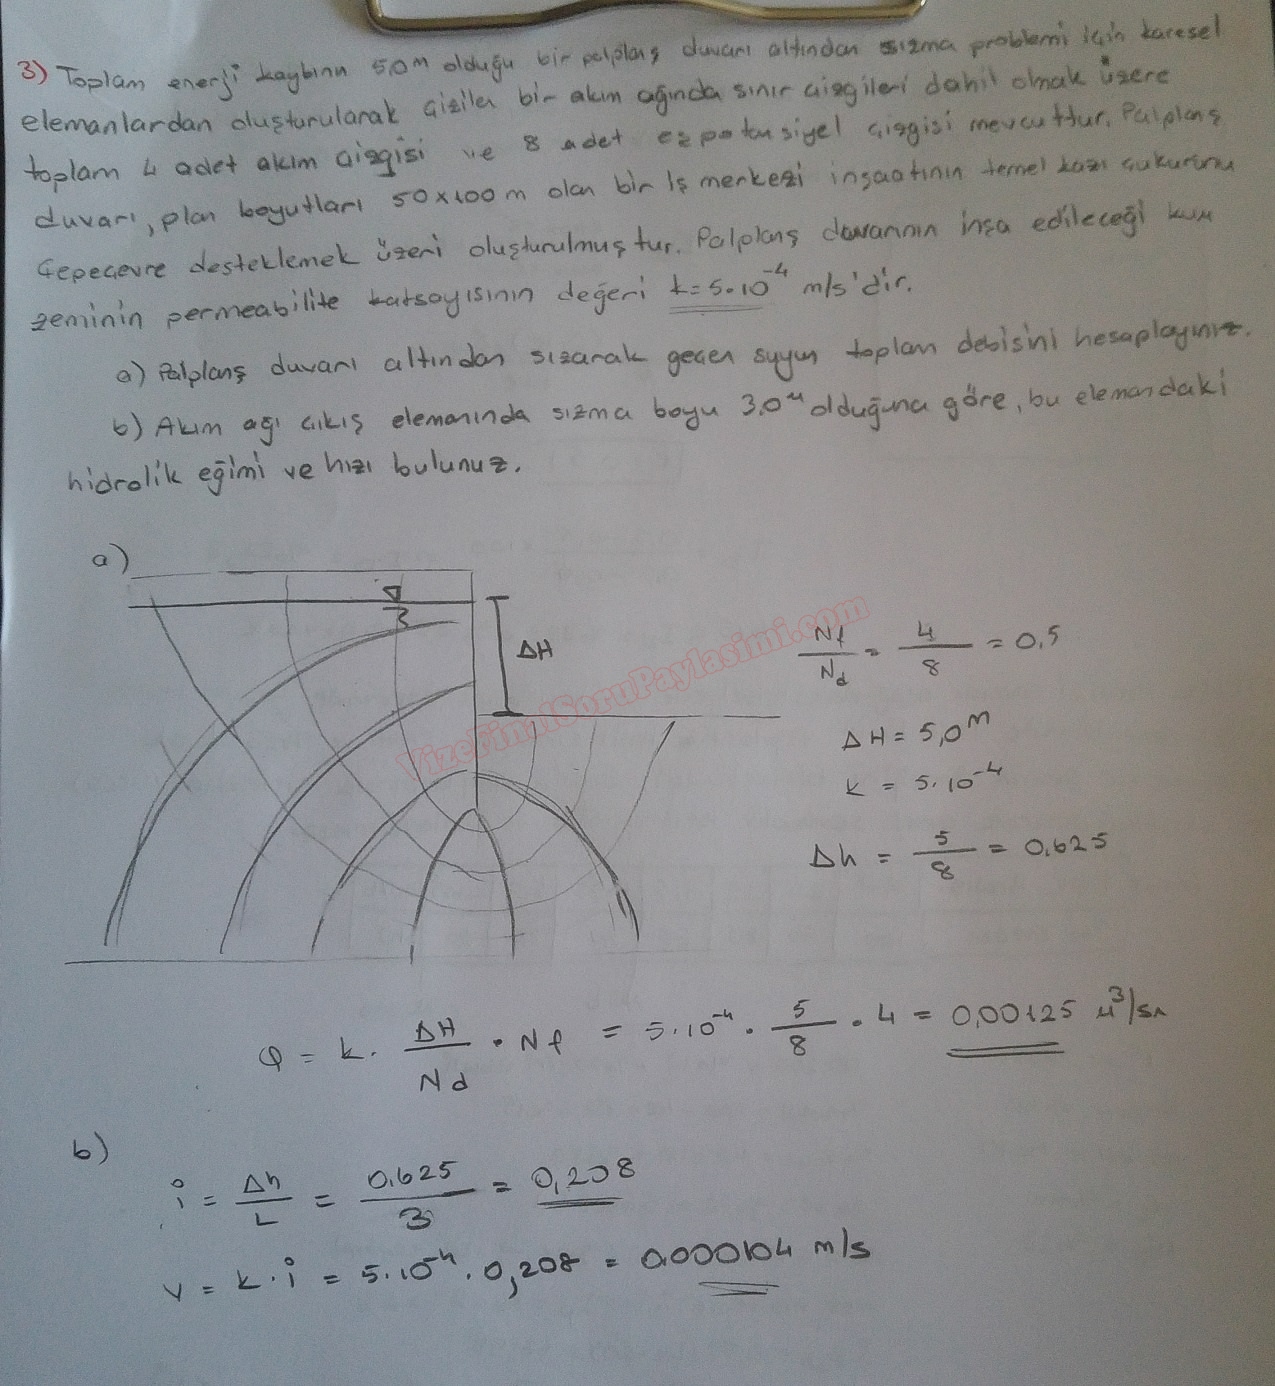 3) Toplam enerji kaybının 5.0m olduğu bir palplanş duvarı altından sızma problemi için karesel
elemanlardan oluşturularak çizilen bir akım ağında sınır çizgileri dahil olmak üzere
toplam 4 adet akım çizgisi ve 8 adet eşpotansiyel çizgisi mevcuttur. Palplanş
duvarı, plan boyutları 50x100m olan bir iş merkezi inşaatının temel kazı çukurunu
çepeçevre desteklemek üzeri oluşturulmuştur. Palplanş duvarının inşa edileceği kum
zeminin permeabilite katsayısının değeri k=5.10⁻⁴ m/s'dir.
a) Palplanş duvarı altından sızarak geçen suyun toplam debisini hesaplayınız.
b) Akım ağı çıkış elemanında sızma boyu 3.0m olduğuna göre, bu elemandaki
hidrolik eğimi ve hızı bulunuz.
a)
ΔH
VizeFinalSoruPaylasimi.com
Nf/Nd = 4/8 = 0,5
ΔH = 5,0m
k = 5.10⁻⁴
Δh = 5/8 = 0,625
Q = k. ΔH/Nd . Nf = 5.10⁻⁴ . 5/8 . 4 = 0,00125 m³/sn
b)
i = Δh/L = 0.625/3 = 0,208
V = k.i = 5.10⁻⁴ . 0,208 = 0.000104 m/s